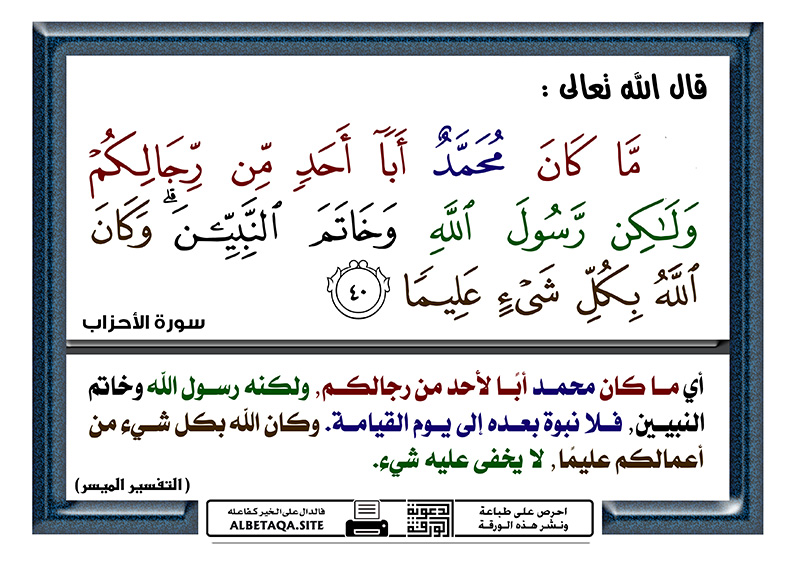 قال الله تعالى :
مَّا كَانَ مُحَمَّدٌ أَبَآ أَحَدٖ مِّن رِّجَالِكُمۡ
وَلَٰكِن رَّسُولَ ٱللَّهِ وَخَاتَمَ ٱلنَّبِيِّـۧنَۗ وَكَانَ
ٱللَّهُ بِكُلِّ شَيۡءٍ عَلِيمٗا ٤٠
سورة الأحزاب
أي ما كان محمد أبًا لأحد من رجالكم, ولكنه رسول الله وخاتم
النبيين, فلا نبوة بعده إلى يوم القيامة. وكان الله بكل شيء من
أعمالكم عليمًا, لا يخفى عليه شيء.
( التفسير الميسر)
احرص على طباعة
ونشر هذه الورقة
الورقة
الدعوية
فالدال على الخير كفاعله
ALBETAQA.SITE